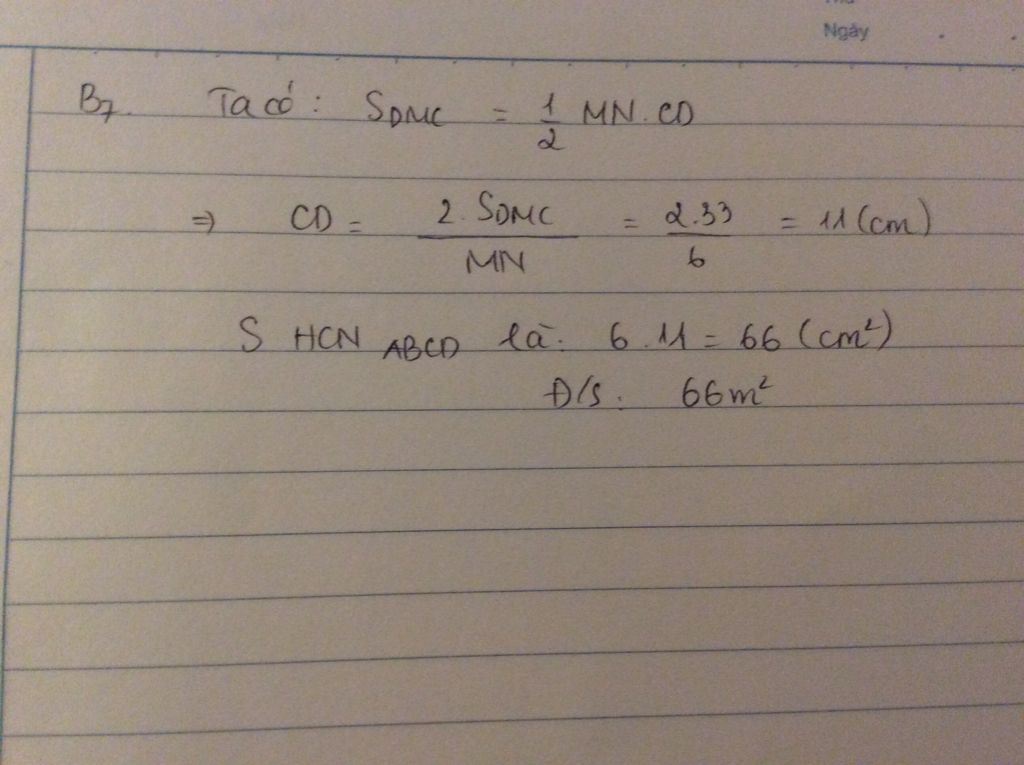 Ngày
B7. Ta có: SDMC = 1/2 MN.CD
⇒ CD = 2.SDMC/MN = 2.33/6 = 11 (cm)
S HCN ABCD là: 6.11 = 66 (cm²)
Đ/S: 66m²